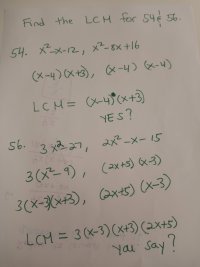 Find the LCM for 54 & 56.
54. x²-x-12, x²-8x+16
(x-4)(x+3), (x-4)(x-4)
LCM = (x-4)²(x+3)
YES?
56. 3x²-27, 2x²-x-15
3(x²-9), (2x+5)(x-3)
3(x-3)(x+3), (2x+5)(x-3)
LCM = 3(x-3)(x+3)(2x+5)
You say?